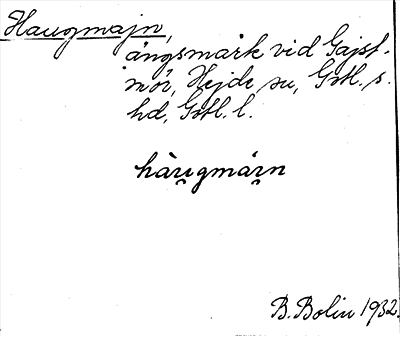 Haugmajn,
ängsmark vid Gajst-
mör, Hejde sn, Gotl. s.
hd, Gotl. l.
hàu̯gmári̯n
B. Bolin 1932.